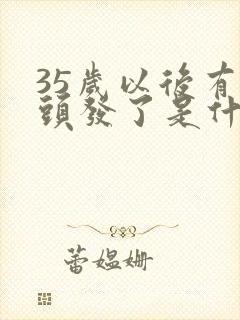 35歲以後有
頭發了是什
蕾媼姍